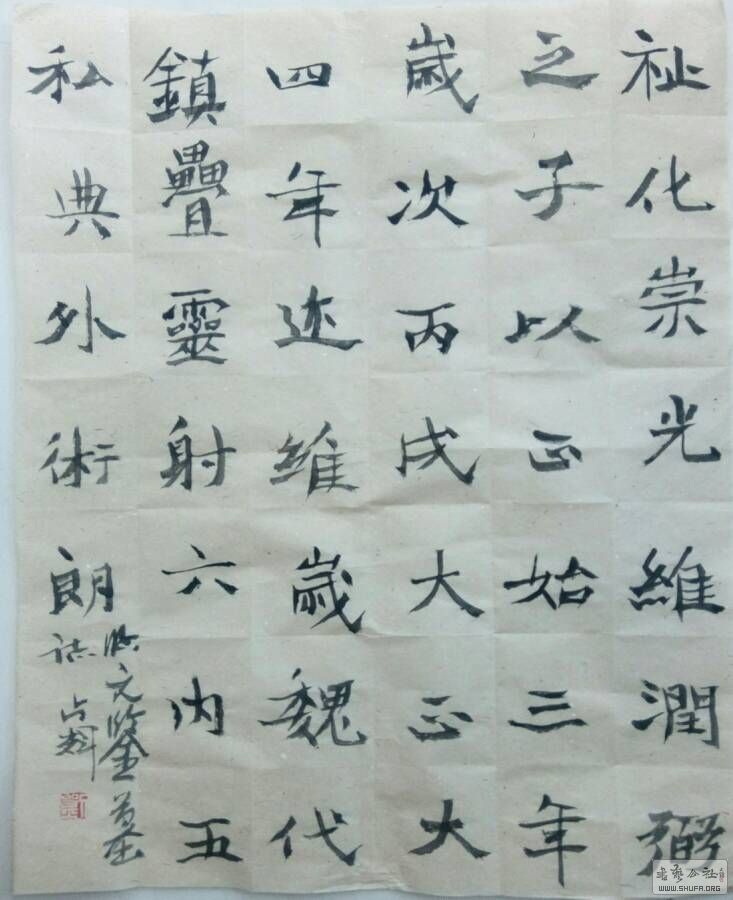 祉化崇光維潤
之子以正始三年
歲次丙戌大正大
四年迹維歲魏代
鎮疊靈射六內五
私典外術朗
臨元鑒墓
誌占輝
书艺公社
WWW.SHUFA.ORG